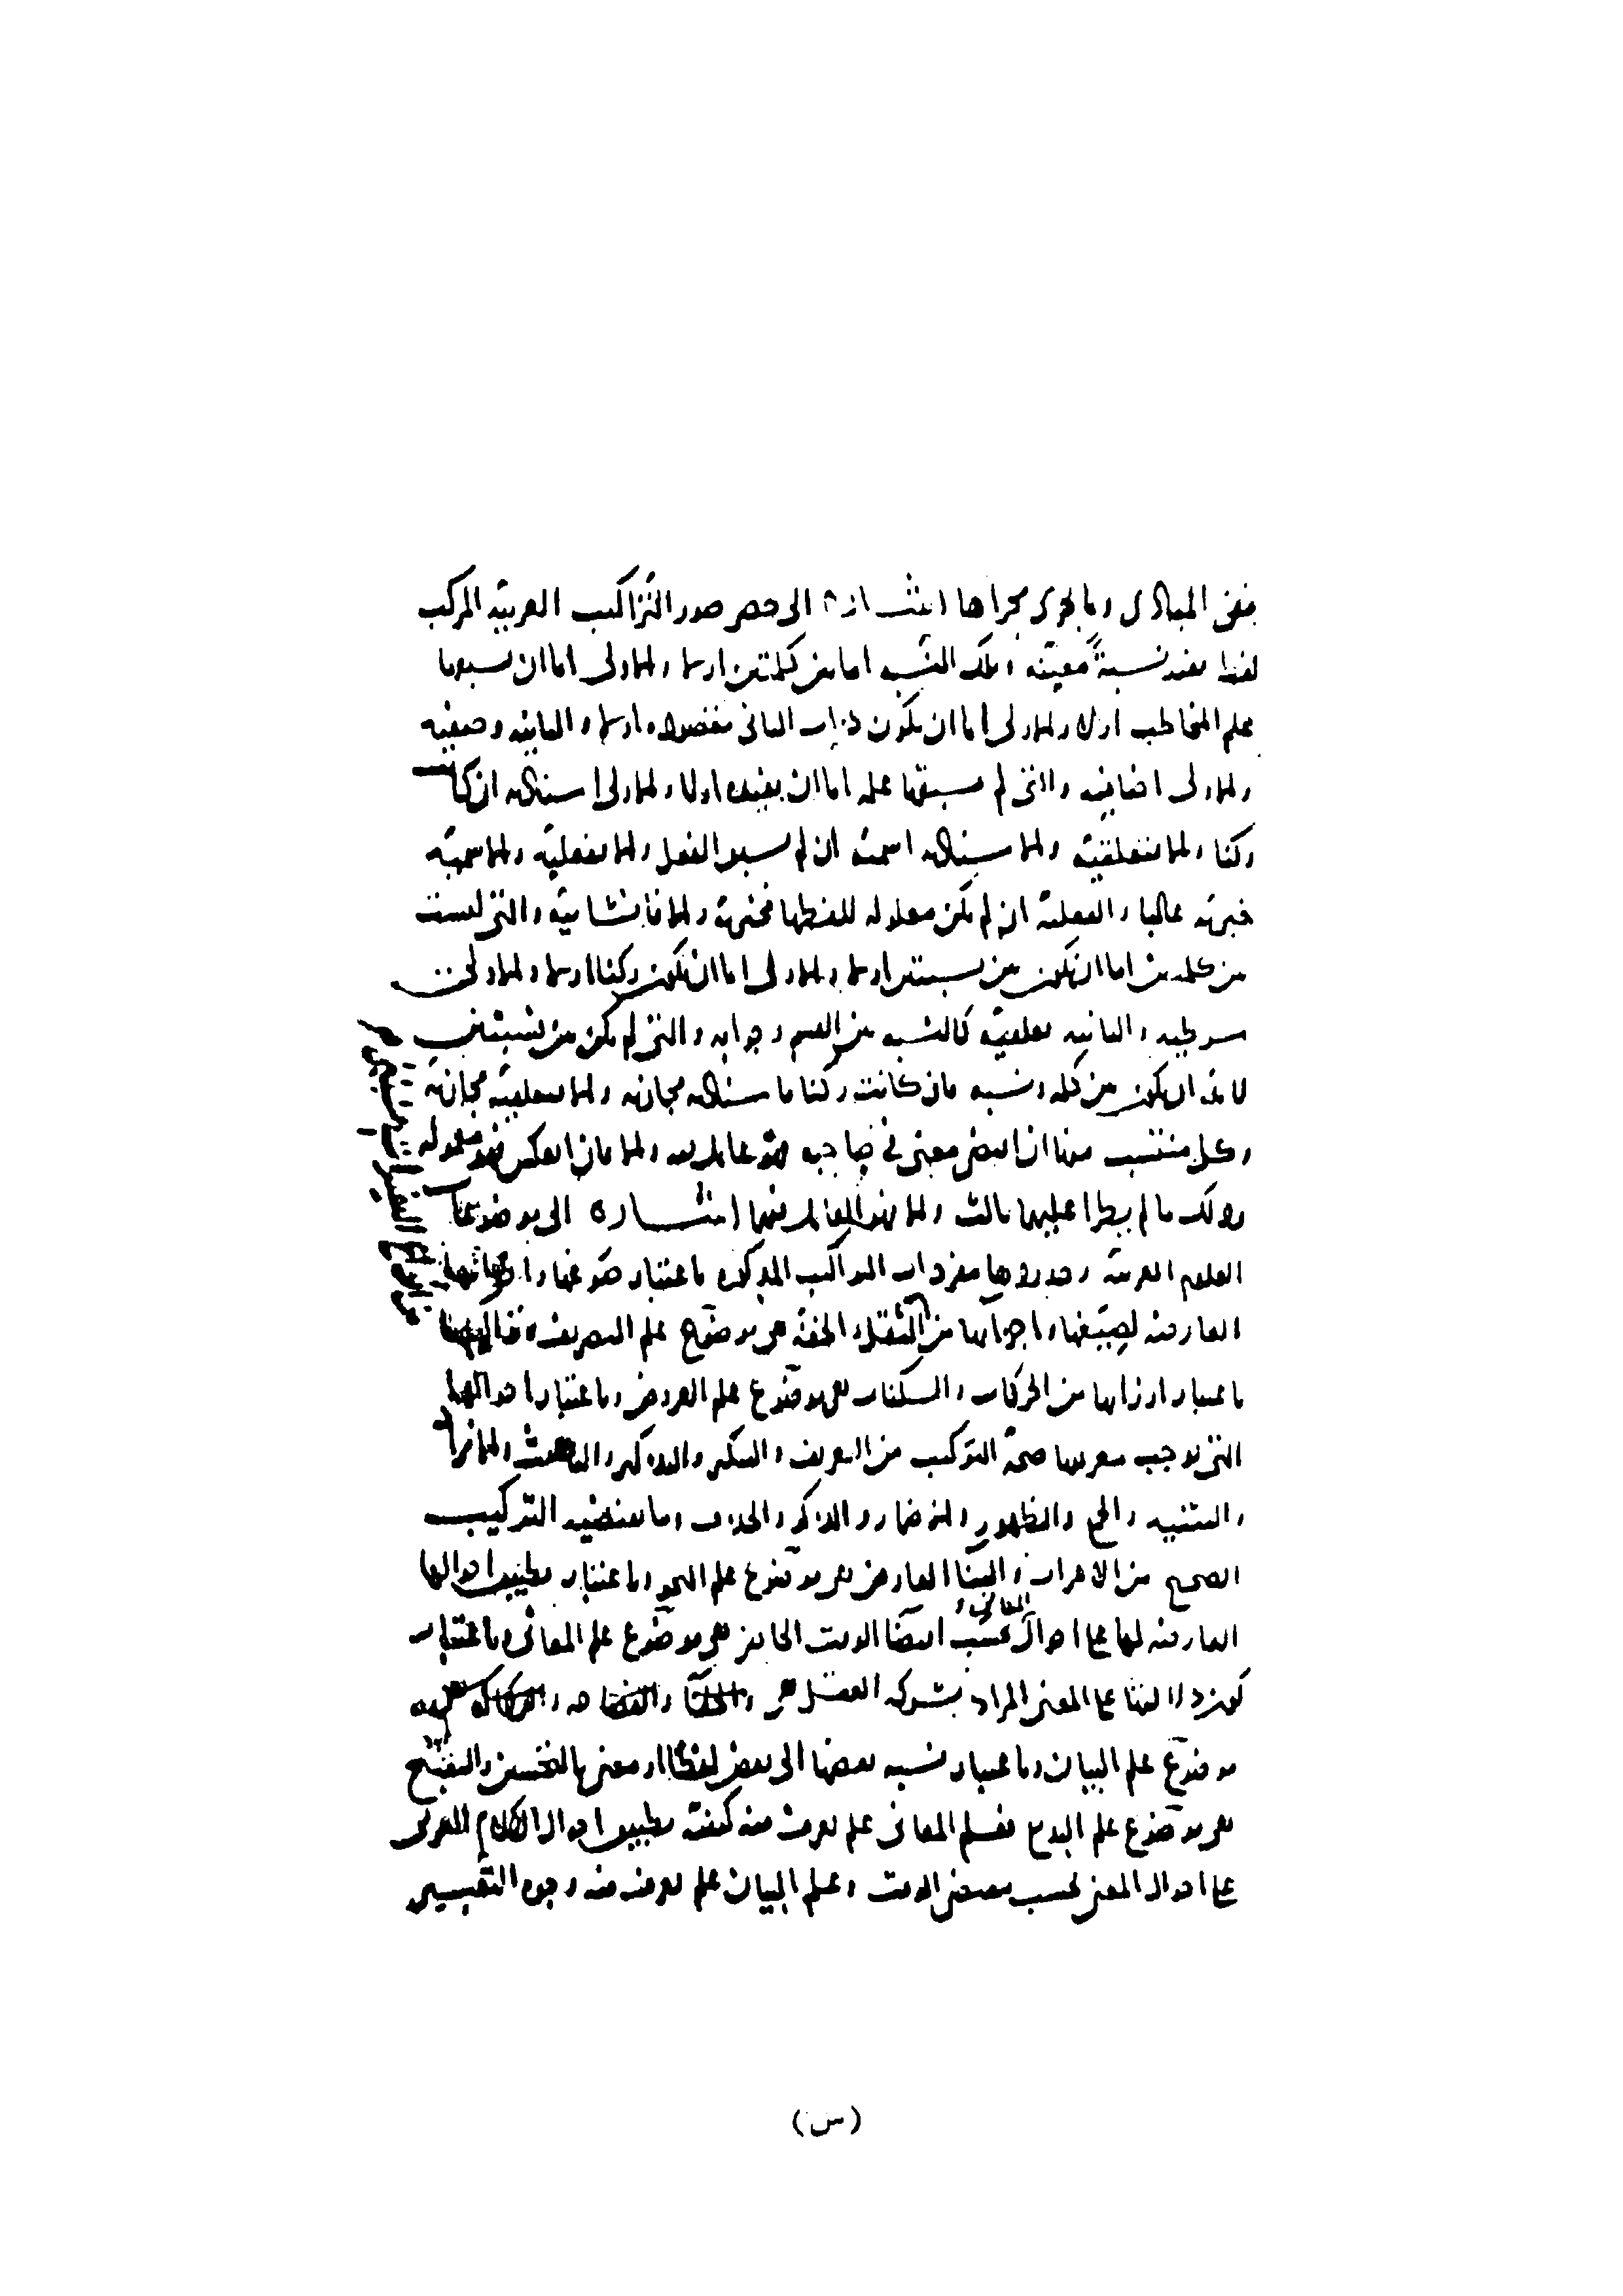 ففى المبادى وما يجرى مجراها اشارة الى حصر صور التراكيب العربية المركب
لفظا يفيد نسبةً معينة وتلك النسبة اما بين كلمتين او لا والاولى اما ان يسبق بها
علم المخاطب او لا والاولى اما ان يكون ذات الثانى مقصودة او لا والثانية وصفية
والاولى اضافية والتى لم يسبقها علمه اما ان يفيده او لا والاولى اسنادية ان كانت
ركنا والا فتعلقية والاسنادية اسمية ان لم يسبق الفعل والا ففعلية والاسمية
خبرية غالبا والفعلية ان لم يكن معلولة للفظها فخبرية والا فانشائية والتى ليست
بين كلمتين اما ان يكون بين نسبتين او لا والاولى اما ان يكون ركنا او لا والاولى
شرطية والثانية تعلقية كالنسبة بين القسم وجوابه والتى لم يكن بين نسبتين
لا بد ان يكون بين كلمة ونسبة فان كانت ركنا فاسنادية مجازية والا فتعلقية مجازية
وكل منتسب منها ان اقتضى معنى فى صاحبه فهو عامل فيه والا فان انعكس فهو معموله
وذلك ما لم يطرا عليهما ثالث والا فهو العامل فيهما اشارة الى موضوعات
العلوم العربية وحدودها مفردات التراكيب المذكورة باعتبار صوغها و
العارضة لصيغها واجزائها من الثقل والخفة هى موضوع علم التصريف
باعتبار اوزانها من الحركات والسكنات هى موضوع علم العروض وباعتبار احوالها
التى توجب معرفتها صحة التركيب من التعريف والتنكير والتذكير والتانيث والافراد
والتثنية والجمع والظهور والاضمار والذكر والحذف وما يقتضيه التركيب
الصحيح من الاعراب والبنا العارض هى موضوع علم النحو وباعتبار تطبيق احوالها
العارضة لها على احوال المعانى بحسب اقتضا الوقت الحاضر هى موضوع علم المعانى وباعتبار
كونها على المعنى المراد بشركة العقل
موضوع علم البيان وباعتبار نسبة بعضها الى بعض لفظا او معنى بالتحسين والتقبيح
هى موضوع علم البديع فعلم المعانى علم يعرف منه كيفية تطبيق احوال الكلام العربى
على احوال المعنى بحسب مقتضى الوقت وعلم البيان علم يعرف منه وجوه التفسير
(س)